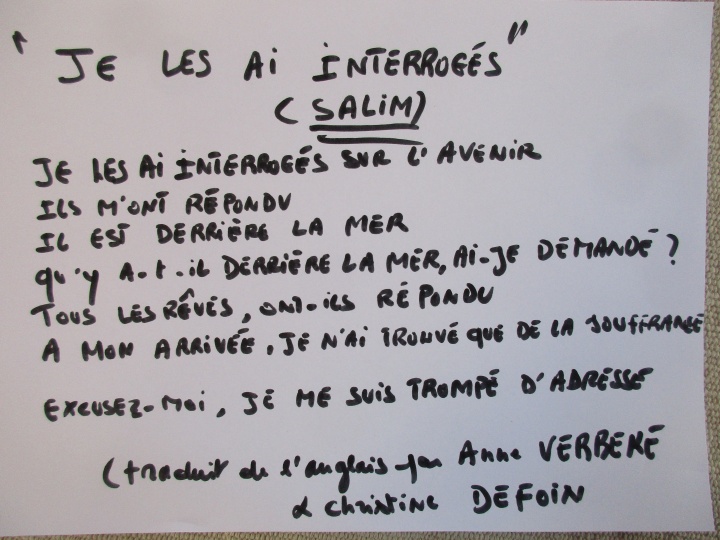 " JE LES AI INTERROGÉS "
(SALIM)
JE LES AI INTERROGÉS SUR L'AVENIR
ILS M'ONT RÉPONDU
IL EST DERRIÈRE LA MER
QU'Y A-T-IL DERRIÈRE LA MER, AI-JE DEMANDÉ ?
TOUS LES RÊVES, ONT-ILS RÉPONDU
A MON ARRIVÉE, JE N'AI TROUVÉ QUE DE LA SOUFFRANCE
EXCUSEZ-MOI, JE ME SUIS TROMPÉ D'ADRESSE
(traduit de l'anglais par Anne VERBEKE
& Christine DEFOIN